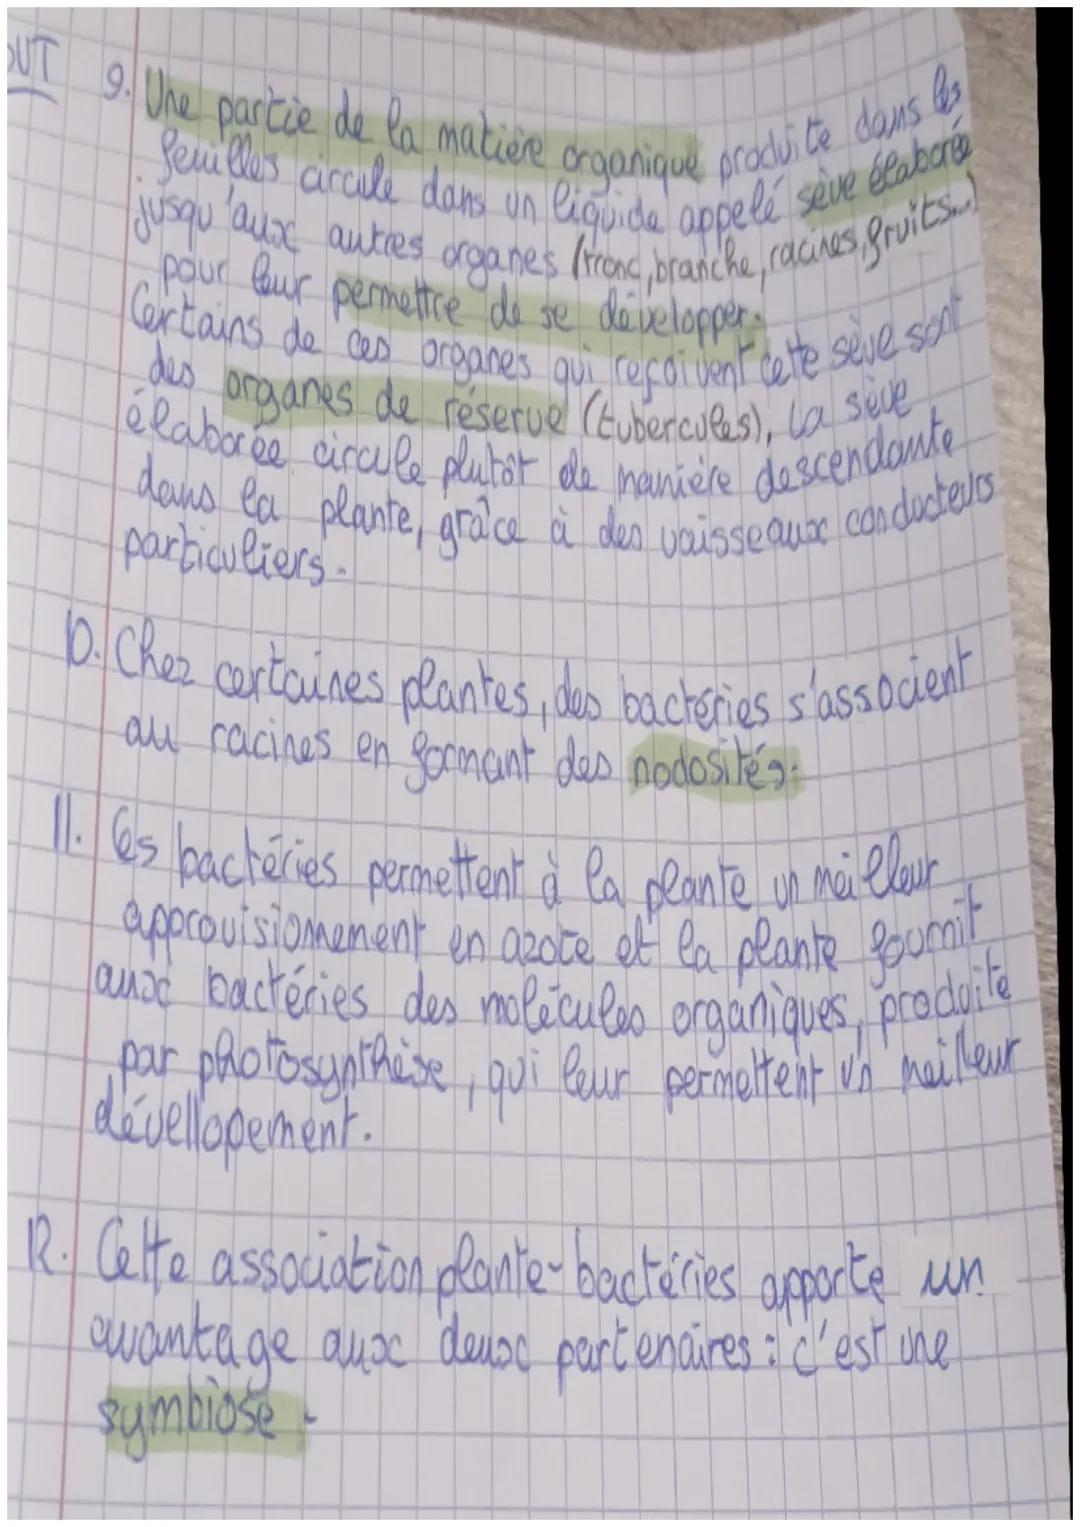 OUT
9. Une partie de la matière organique produite dans les
feuilles circule dans un liquide appelé sève élaborée
jusqu'aux autres organes (tronc, branche, racines, fruits...)
pour leur permettre de se développer.
Certains de ces organes qui reçoivent cette sève sont
des organes de réserve (tubercules), la sève
élaborée circule plutôt de manière descendante
dans la plante, grâce à des vaisseaux conducteurs
particuliers.
10. Chez certaines plantes, des bactéries s'associent
au racines en formant des nodosités.
11. Ces bactéries permettent à la plante un meilleur
approvisionnement en azote et la plante fournit
aux bactéries des molécules organiques, produite
par photosynthèse, qui leur permettent un meilleur
dévellopement.
12. Cette association plante-bactéries apporte un
avantage aux deux partenaires : c'est une
symbiose.